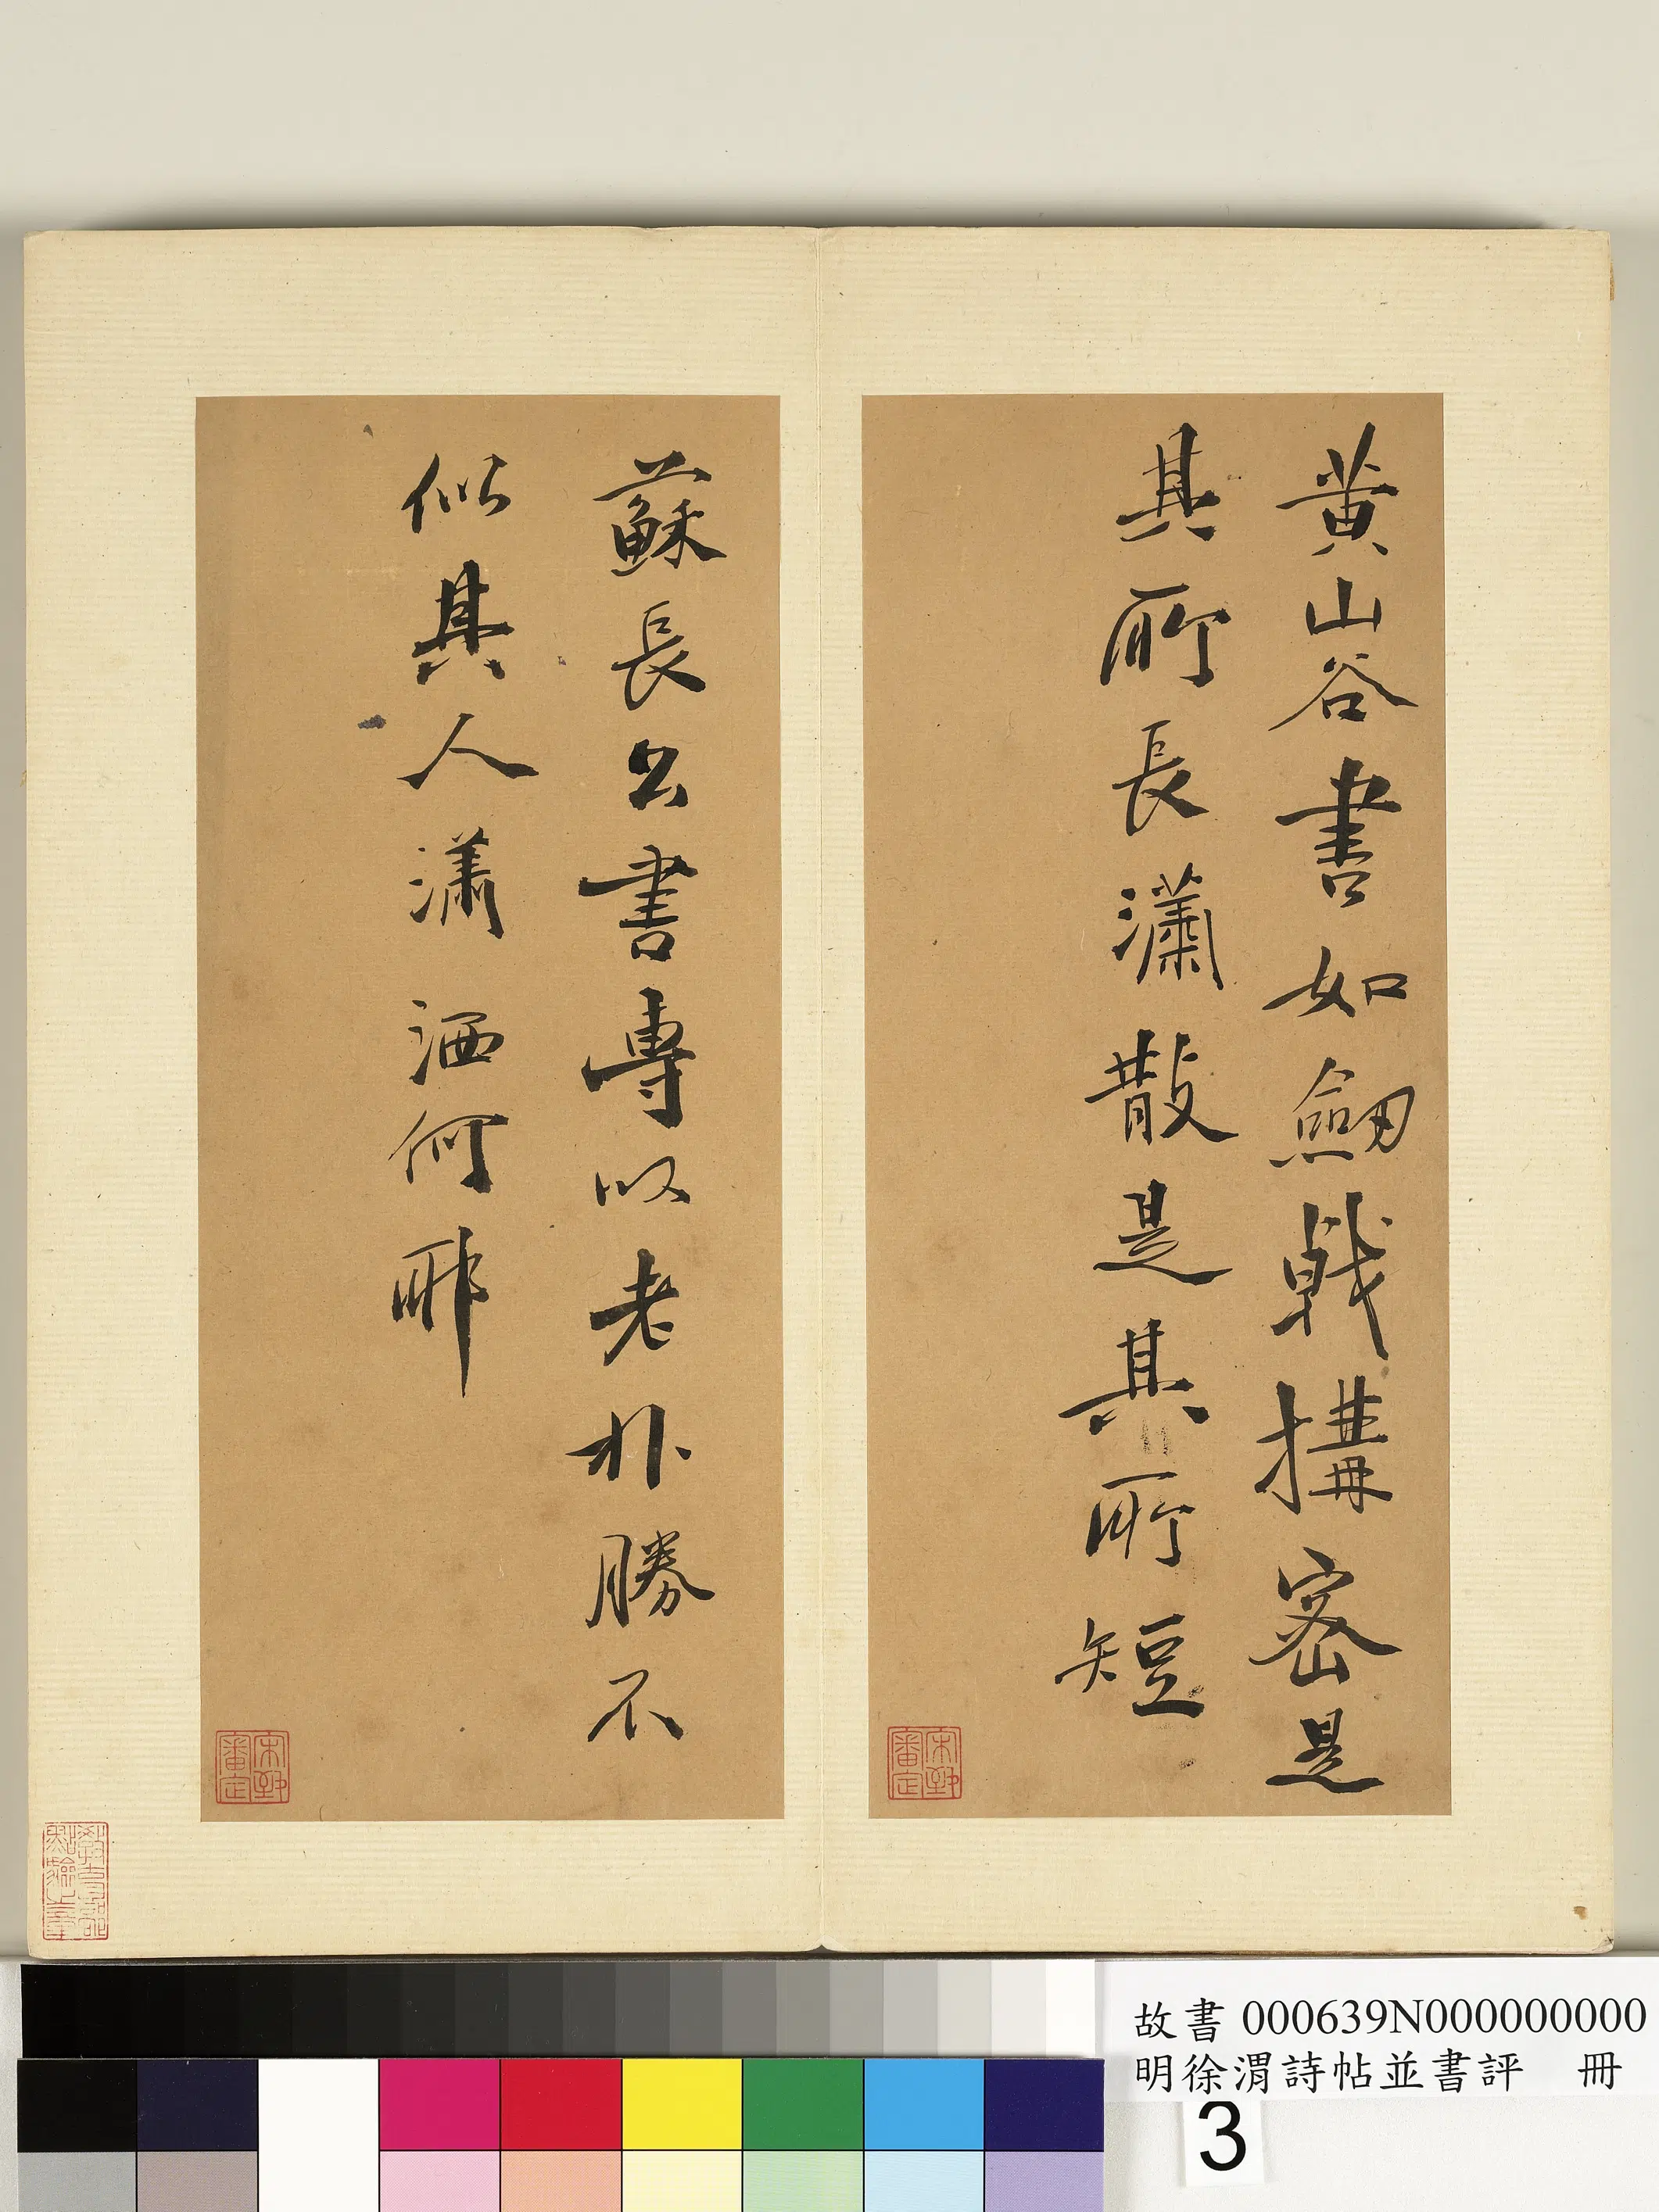 黄山谷書如劒戟搆密是
其所長瀟散是其所短
蘇長公書專以老朴勝不
似其人瀟洒何耶
故書 000639N000000000
明徐渭詩帖並書評 冊
3